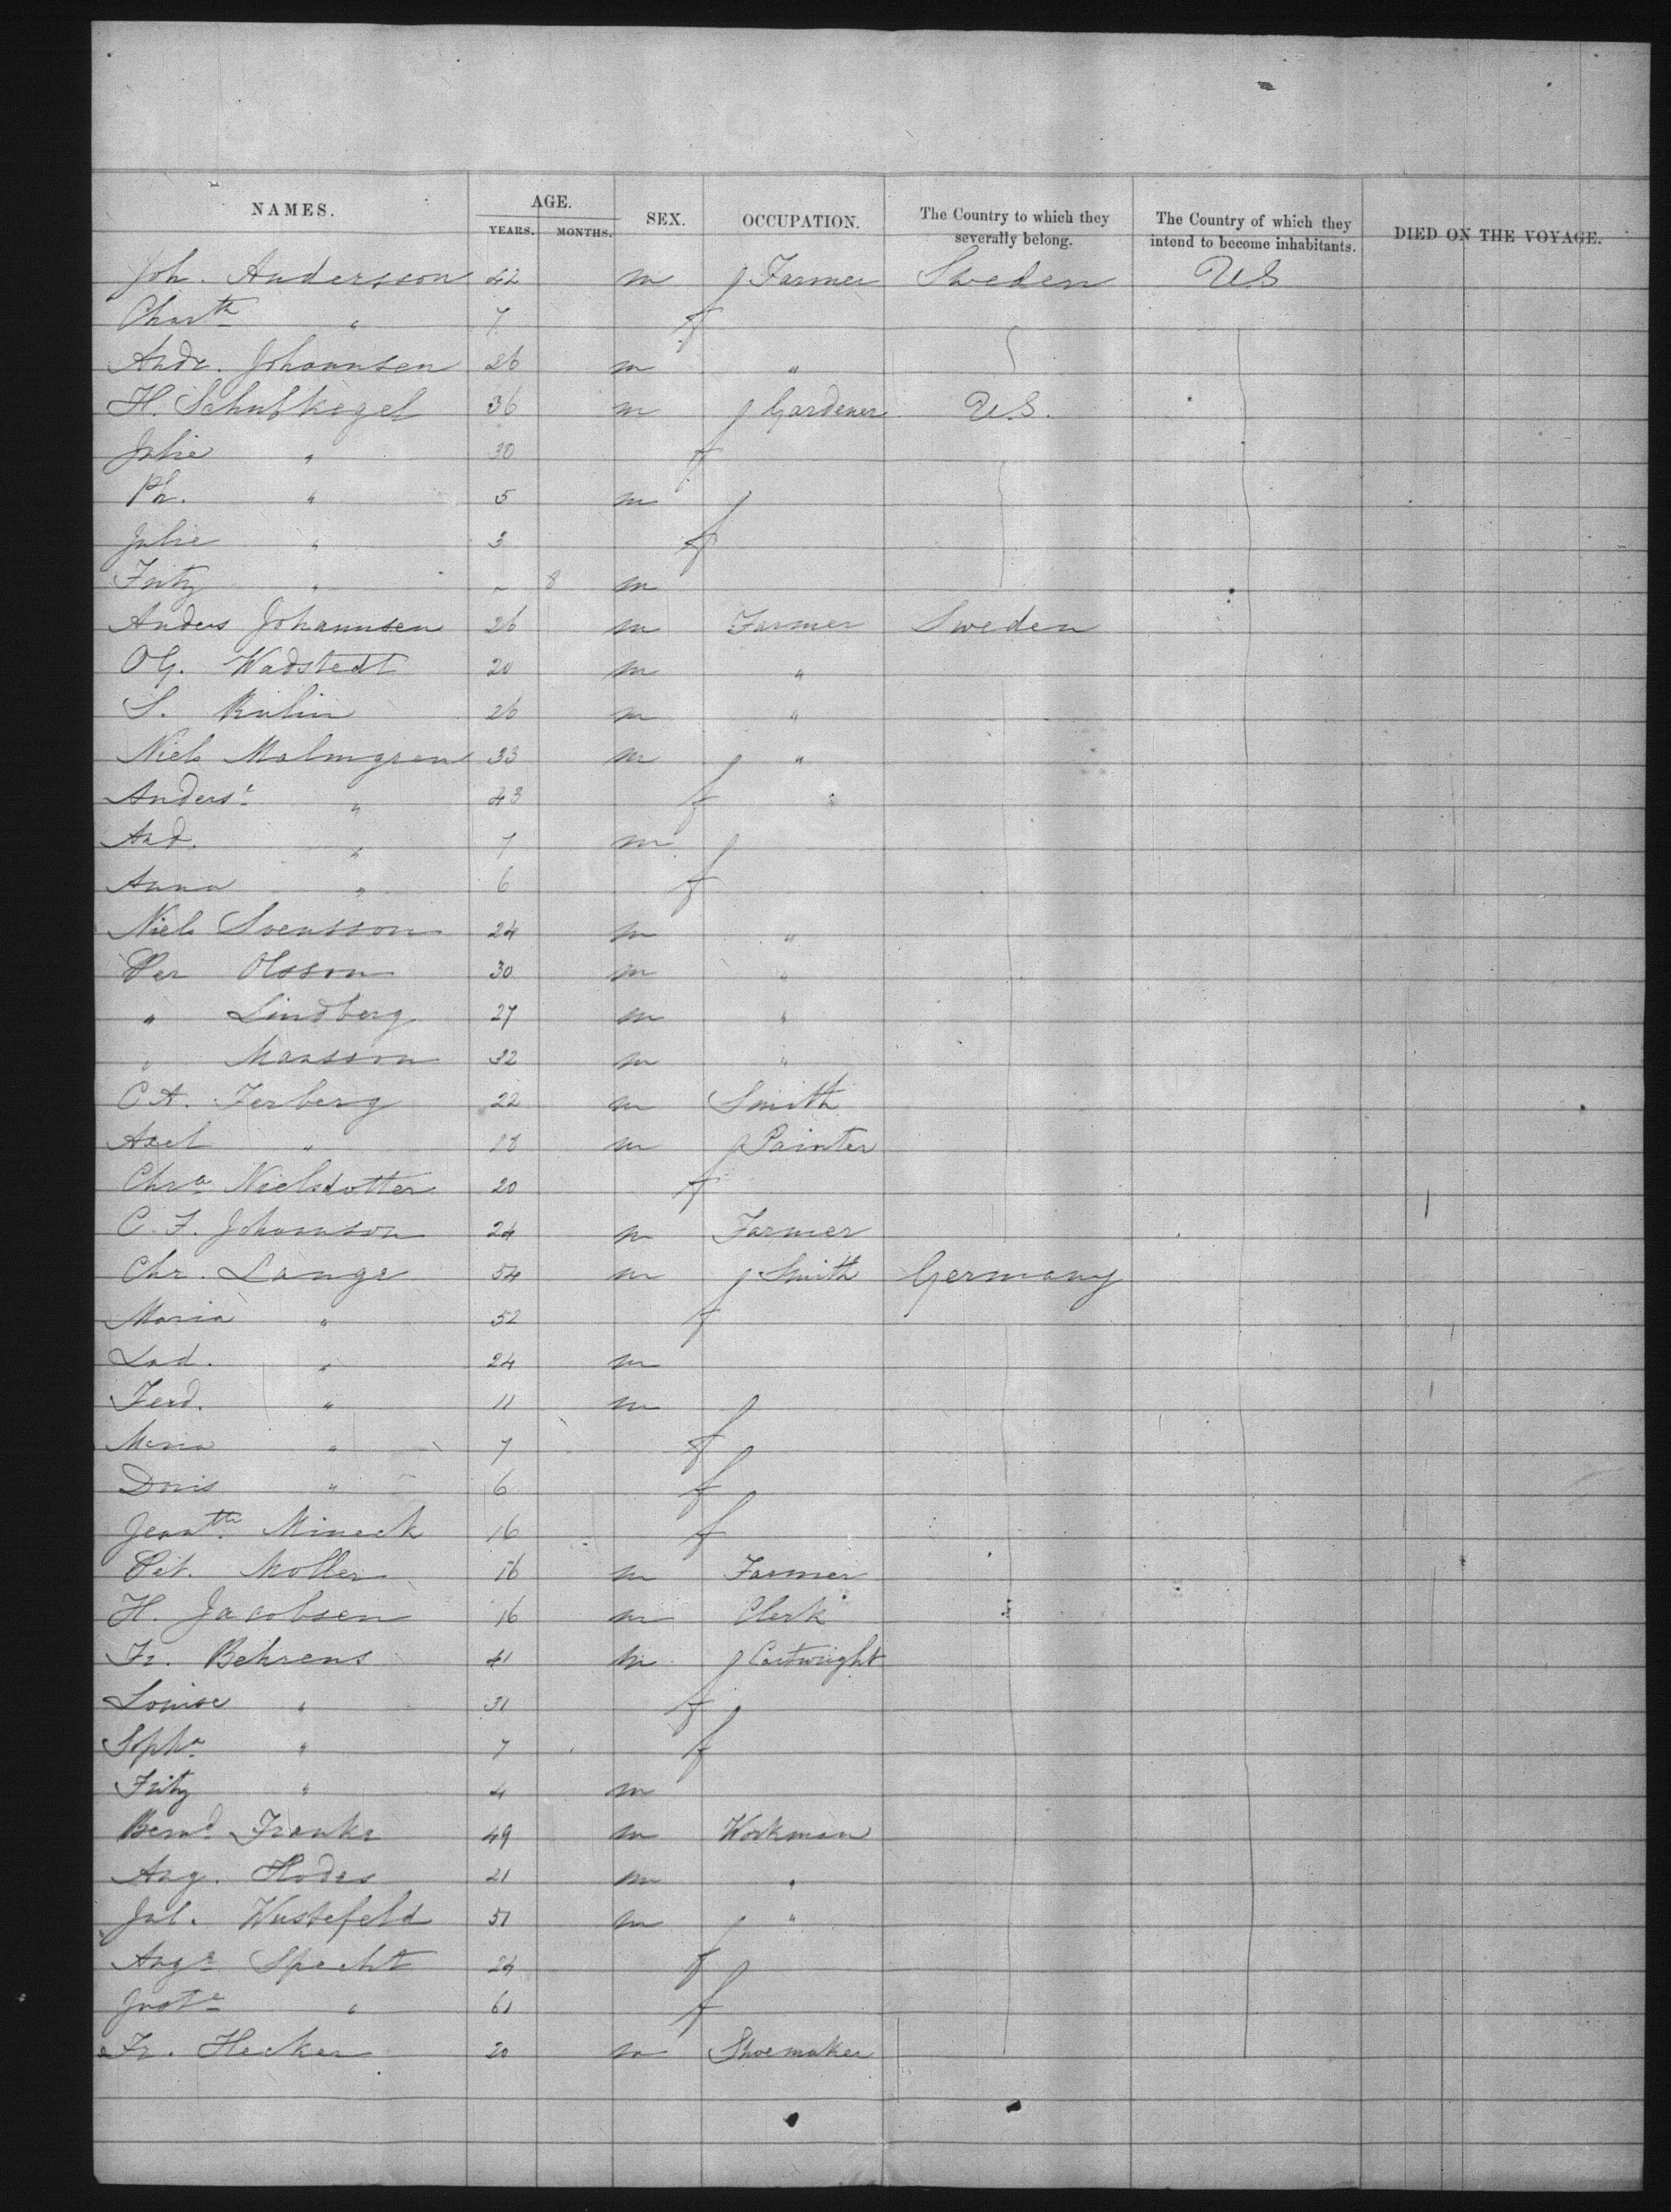 NAMES. AGE. YEARS. MONTHS. SEX. OCCUPATION. The Country to which they severally belong. The Country of which they intend to become inhabitants. DIED ON THE VOYAGE.
Joh. Andersson 42 m Farmer Sweden U.S
Charth " 7 f
Andr. Johannsen 26 m "
H. Schubkegel 36 m Gardener U.S.
Julie " 30 f
Ph. " 5 m
Julie " 3 f
Fritz " - 8 m
Anders Johannsen 26 m Farmer Sweden
O.G. Wadstedt 20 m "
S. 26 m "
Niels Malmgren 33 m "
Anders " 43 f
And. " 7 m
Anna " 6 f
Niels Svensson 24 m "
Per Olsson 30 m "
" Lindberg 27 m "
" Mansson 32 m "
C.A. Ferberg 22 m Smith
Axel " 18 m Painter
Chra Nielsdotter 20 f
C. F. Johannson 24 m Farmer
Chr. Lange 54 m Smith Germany
Maria " 52 f
Lud. " 24 m
Ferd. " 11 m
" 7 f
Doris " 6 f
Jeantte Mineck 16 f
Pet. Moller 16 m Farmer
H. Jacobsen 16 m Clerk
Fr. Behrens 41 m Cartwright
Louise " 31 f
Sopha " 7 f
Fritz " 4 m
Bernd Franke 49 m Workman
Aug. Hodes 21 m "
Jul. Wustefeld 51 m "
Auge Specht 24 f
" 61 f
Fr. Hecker 20 m Shoemaker